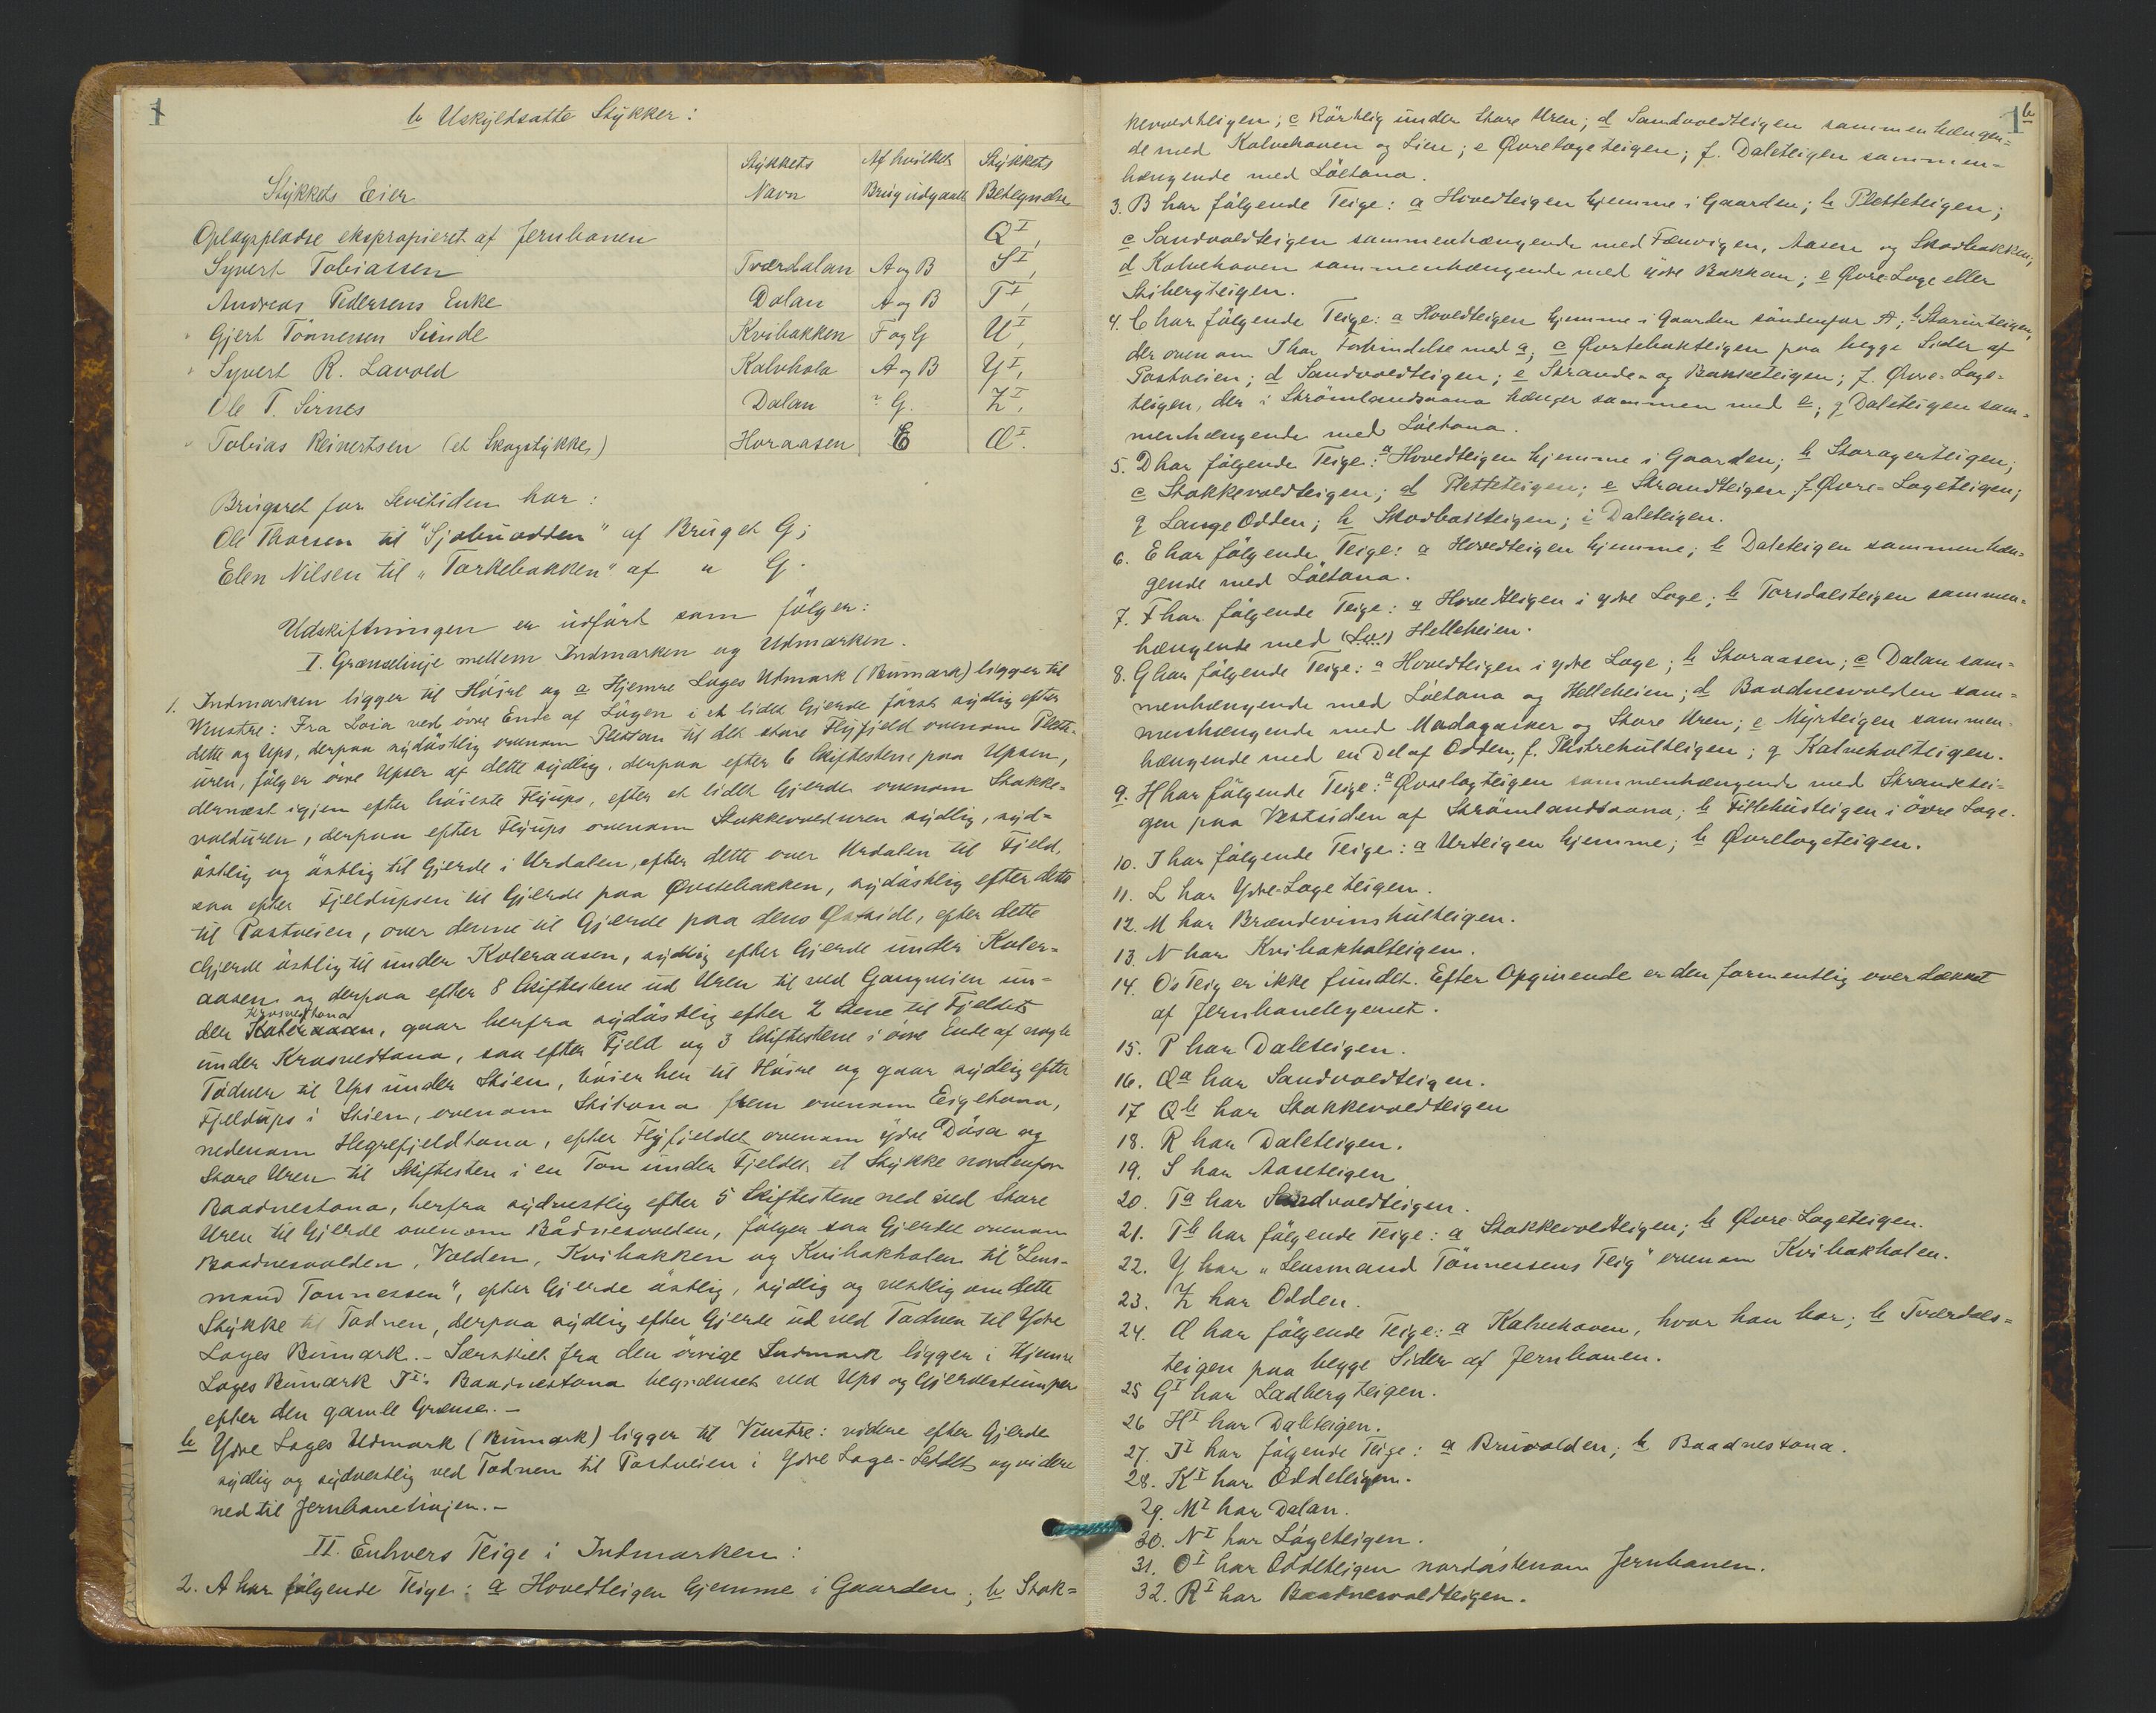 1
b Uskyldsatte Stykker:
Stykkets Eier | Stykkets Navn | Af hvilket Brug udgaaet | Stykkets Betegnelse
Oplagspladse ekspropieret af Jernbanen | | | Q I,
Syvert Tobiassen | Tværdalan | A og B | S I,
Andreas Pedersens Enke | Dalan | A og B | T I,
Gjert Tönnessen Sunde | Kvibakken | F og G | U I,
Syvert R. Lavold | Kalvhola | A og B | Y I,
Ole T. Sirnes | Dalan | " G. | Z I,
Tobias Reinertsen (et Skogstykke) | Horaasen | E | Æ I.
Brugsret for Levetiden har:
Ole Thorsen til "Sjobuodden" af Bruget G;
Elen Nilsen til "Torkebakken" af " G.
Udskiftningen er udfört som fölger:
I. Grænselinje mellem Indmarken og Udmarken.
1. Indmarken ligger til Höire og a Hjemre Loges Udmark (Bumark) ligger til
Venstre: Fra Loia ved övre Ende af Lögen i et lidet Gjerde först sydlig efter
dette og Ups, derpaa sydöstlig ovenom Plettan til det store Flyfjeld ovenom Plett-
uren, fölger övre Upser af dette sydlig, derpaa efter 6 Skiftestene paa Upsen,
dernæst igjen efter höieste Flyups, efter et lidet Gjerde ovenom Stokke-
volduren, derpaa efter Flyups ovenom Stokkevolduren sydlig, syd-
östlig og östlig til Gjerde i Urdalen, efter dette over Urdalen til Fjeld,
saa efter Fjeldupsen til Gjerde paa Øvstebakken, sydöstlig efter dette
til Postveien, over denne til Gjerde paa dens Østside, efter dette
Gjerde östlig til under Koleraasen, sydlig efter Gjerde under Koler-
aasen og derpaa efter 8 Skiftestene ud Uren til ved Gangveien un-
Krosvedtona
der Koleraasen, gaar herfra sydöstlig efter 2 Stene til Fjeldet
under Krosvedtona, saa efter Fjeld og 3 Skiftestene i övre Ende af nogle
Todner til Ups under Skien, böier her til Höire og gaar sydlig efter
Fjeldups i Skien, ovenom Skitona frem ovenom Eigetona,
nedenom Hegrefjeldtona, efter Flyfjeldet ovenom ydre Dösa og
Store Uren til Skiftesten i en Ton under Fjeldet et Stykke nordenfor
Baadnestona, herfra sydvestlig efter 5 Skiftestene ned ved Store
Uren til Gjerde ovenom Bådnesvolden, fölger saa Gjerdet ovenom
Baadnesvolden, Volden, Kvibakken og Kvibakholen til "Lens-
mand Tönnessen", efter Gjerde östlig, sydlig og vestlig om dette
Stykke til Todnen, derpaa sydlig efter Gjerde ud ved Todnen til Ydre
Loges Bumark. - Særskilt fra den övrige Indmark ligger i Hjemre
Loges Bumark J I's Baadnestona begrænset ved Ups og Gjerdestumper
efter den gamle Grænse. -
b Ydre Loges Udmark (Bumark) ligger til Venstre: videre efter Gjerde
sydlig og sydvestlig ved Todnen til Postveien i Ydre Loge-Leddet og videre
ned til Jernbanelinjen. -
II. Enhvers Teige i Indmarken:
2. A har fölgende Teige: a Hovedteigen hjemme i Gaarden; b Stok-
1b
kevoldteigen; c Rörtlig under Store Uren; d Sandvoldteigen sammenhængen-
de med Kalvehaven og Lien; e Øvrelogeteigen; f. Daleteigen sammen-
hængende med Löetona.
3. B har fölgende Teige: a Hovedteigen hjemme i Gaarden; b Pletteteigen;
c Sandvoldteigen sammenhængende med Fænvigen, Aasen og Skodbakken;
d Kalvehaven sammenhængende med ydre Bakkan; e Øvre-Loge eller
Stibergteigen.
4. C har fölgende Teige: a Hovedteigen hjemme i Gaarden söndenfor A; b Storurteigen,
der ovenom I har Forbindelse med a; c Øvstebakteigen paa begge Sider af
Postveien; d Sandvoldteigen; e Strande- og Bakketeigen; f. Øvre-Loge-
teigen, der i Strömlandsvana hænger sammen med e; g Daleteigen sam-
menhængende med Löetona.
5. D har fölgende Teige: a Hovedteigen hjemme i Gaarden; b Storagerteigen;
c Stokkevoldteigen; d Pletteteigen; e Strandteigen; f Øvre-Logeteigen;
g Lange Odden; h Skodbakteigen; i Daleteigen.
6. E har fölgende Teige: a Hovedteigen hjemme; b Daleteigen sammenhæn-
gende med Löetona.
7. F har fölgende Teige: a Hovedteigen i ydre Loge; b Torsdalsteigen sammen-
hængende med Helleheien.
8. G har fölgende Teige: a Hovedteigen i ydre Loge; b Storaasen; c Dalan sam-
menhængende med Löetona og Helleheien; d Baadnesvolden sam-
menhængende med Madagasker og Store Uren; e Myrteigen sammen-
hængende med en Del af Odden; f. Plestrehulteigen; g Kalveholteigen.
9. H har fölgende Teige: a Øvrelogteigen sammenhængende med Strandtei-
gen paa Vestsiden af Strömlandsvana; b Fillehusteigen i övre Loge.
10. I har fölgende Teige: a Urteigen hjemme; b Øvrelogeteigen.
11. L har Ydre-Logeteigen.
12. M har Brændevinshulteigen.
13. N har Kvibakholteigen.
14. Os Teig er ikke fundet. Efter Opgivende er den formentlig overdækket
af Jernbanelegemet.
15. P har Daleteigen.
16. Qa har Sandvoldteigen.
17 Qb har Stokkevoldteigen
18. R har Daleteigen.
19. S har Aaseteigen
20. Ta har Sandvoldteigen.
21. Tb har fölgende Teige: a Stokkevoldteigen; b Øvre-Logeteigen.
22. Y har "Lensmand Tönnessens Teig" ovenom Kvibakholen.
23. Z har Odden.
24. Æ har fölgende Teige: a Kalvehaven, hvor han bor; b Tværdals-
teigen paa begge Sider af Jernbanen.
25 G I har Ladbergteigen.
26 H I har Daleteigen.
27. J I har fölgende Teige: a Bruvolden; b Baadnestona.
28. K I har Oddeteigen.
29. M I har Dalan.
30. N I har Lögeteigen.
31. O I har Oddeteigen nordöstenom Jernbanen.
32. R I har Baadnesvoldteigen.